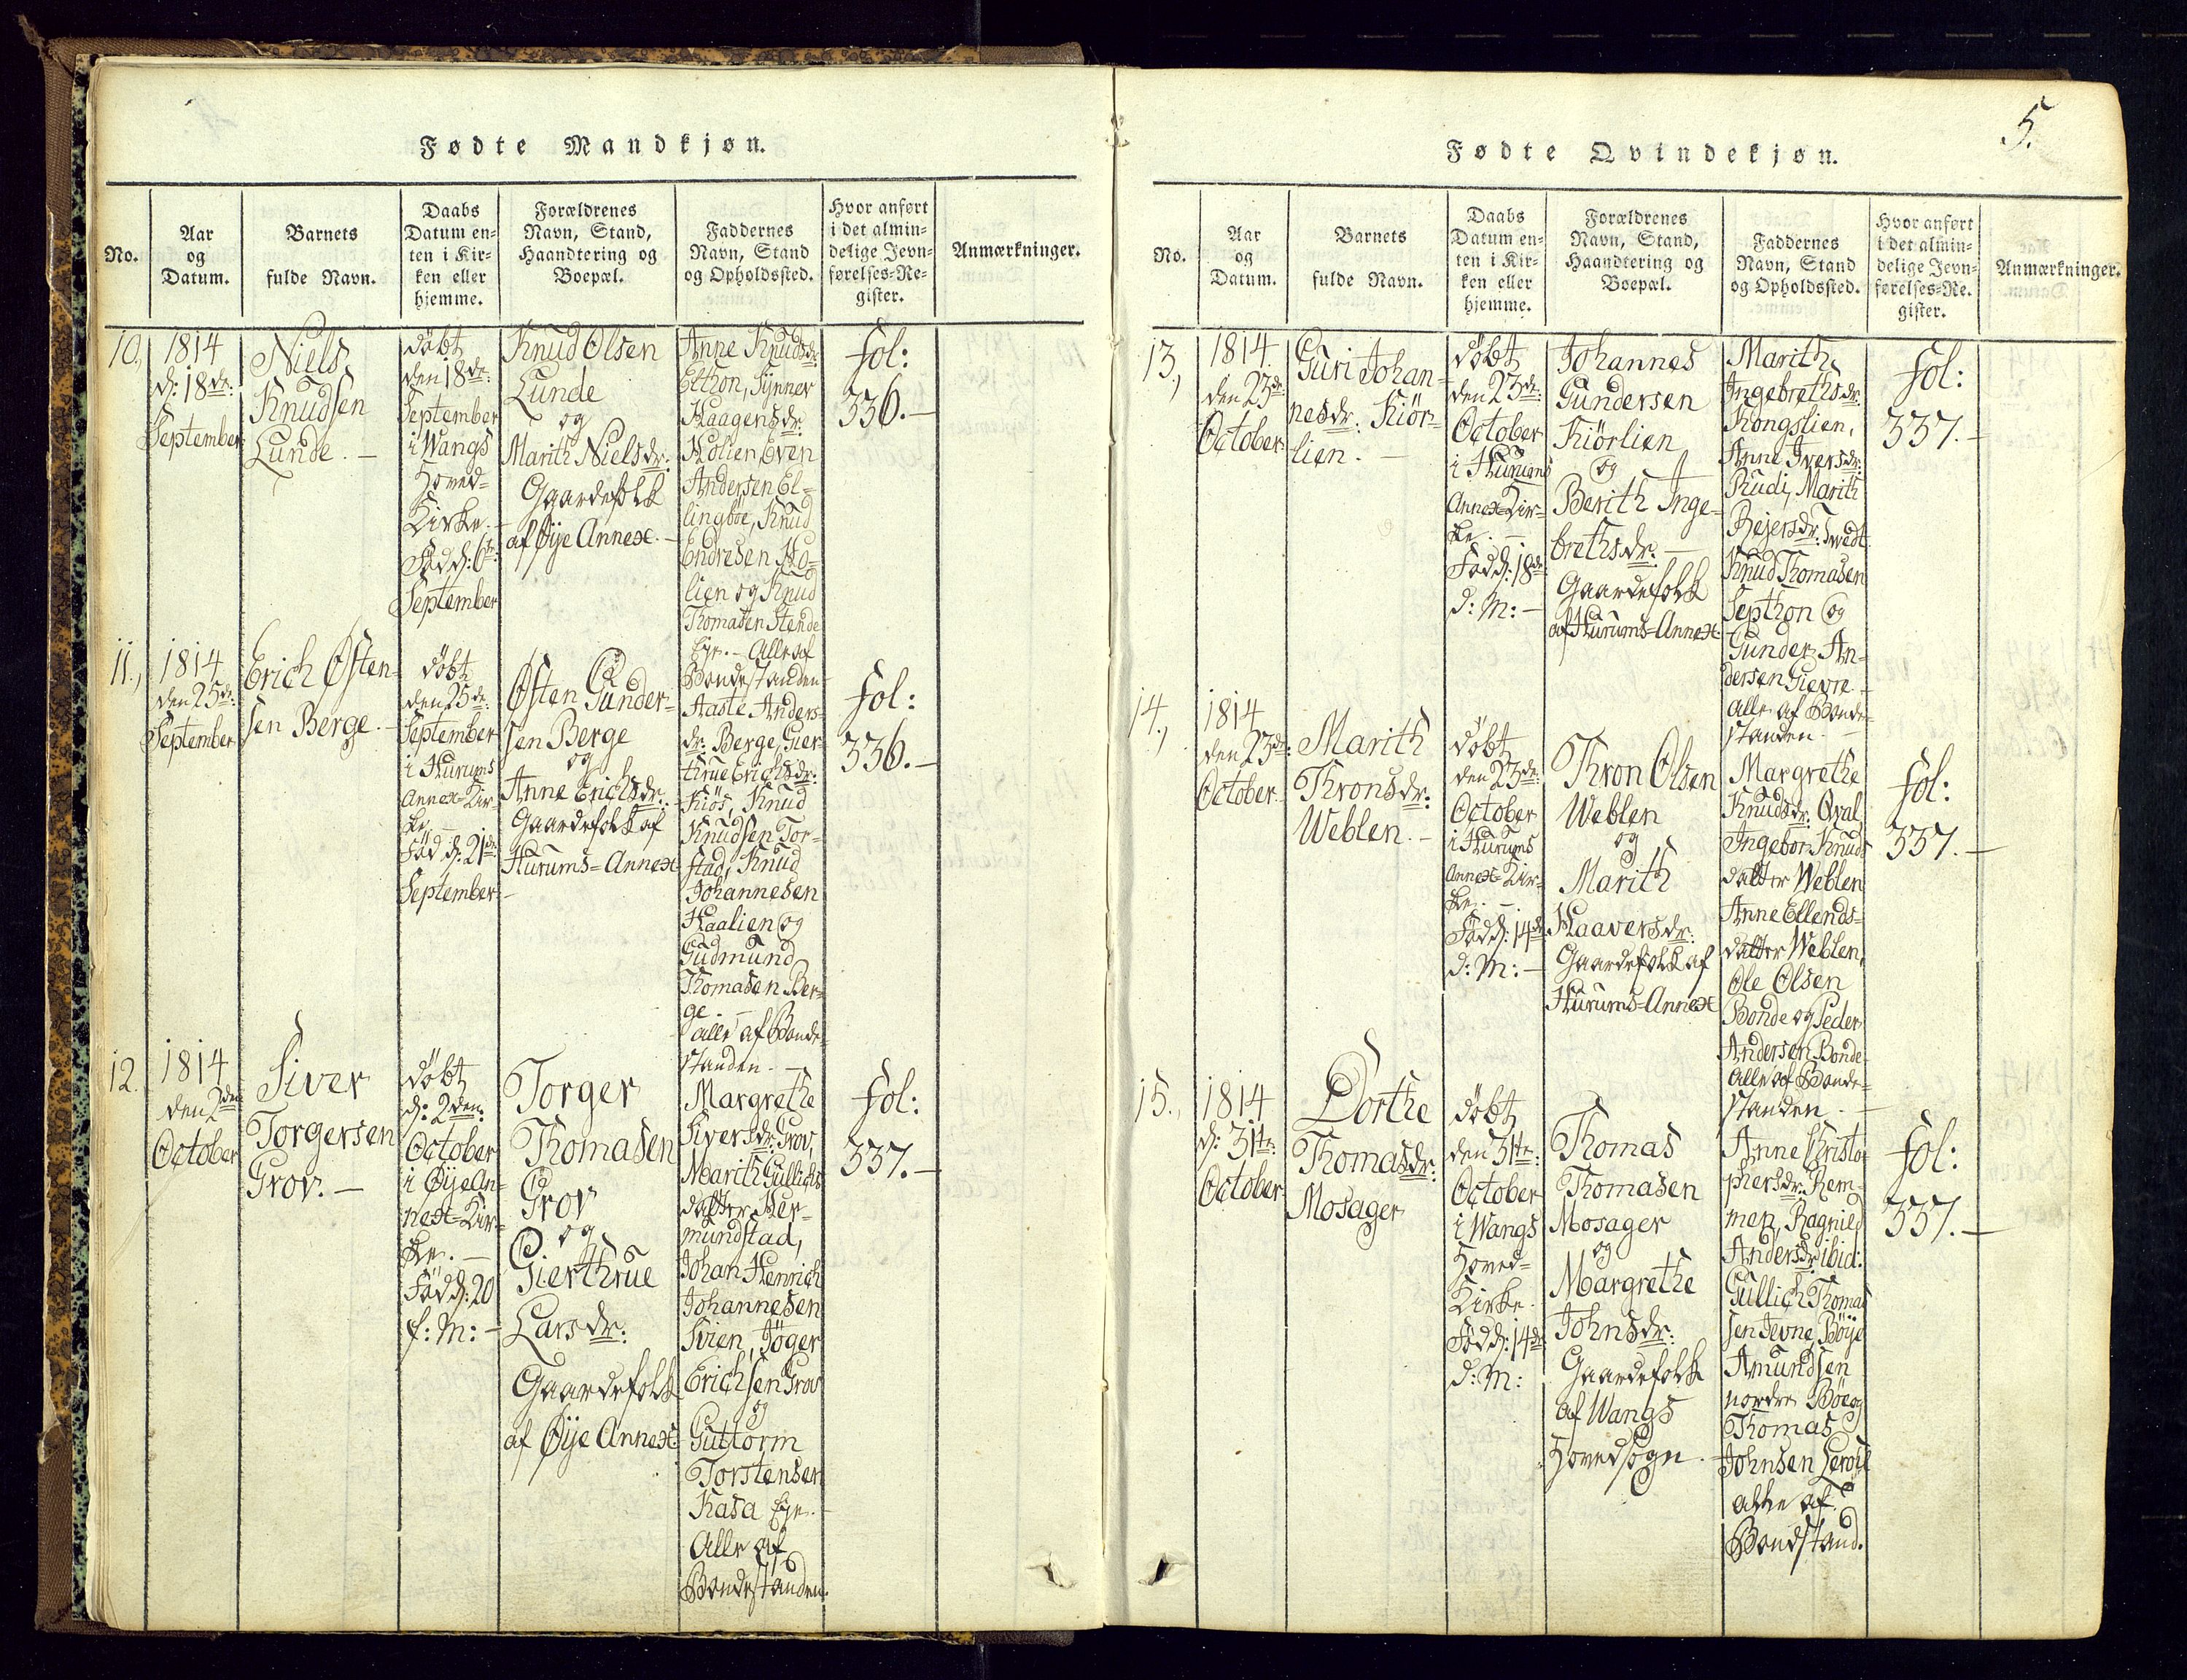 Fødte Mandkjøn.
No.
Aar
og
Datum.
Barnets
fulde Navn.
Daabs
Datum en-
ten i Kir-
ken eller
hjemme.
Forældrenes
Navn, Stand,
Haandtering og
Boepæl.
Faddernes
Navn, Stand
og Opholdssted.
Hvor anført
i det almin-
delige Jevn-
førelses-Re-
gister.
Anmærkninger.
10.,
1814
d: 18de:
September
Niels
Knudsen
Lunde. —
döbt
den 18de:
September
i Wangs
Hoved-
Kirke. —
Föd d: 6te:
September
Knud Olsen
Lunde
og
Marith Nielsdr:
Gaardefolk
af Øije Annex. —
Anne Knudsdr:
Elthon, Synner
Haagensdr:
Holien, Even
Andersen El-
lingböe, Knud
Endresen Ho-
lien og Knud
Thomasen Stende
Eje. — Alle af
Bondestanden
fol:
336. —
11.,
1814
den 25de:
September
Erich Østen-
sen Berge. —
döbt
den 25de:
September
i Hurums
Annex-Kir-
ke. —
Föd d: 21de:
September. —
Østen Gunder-
sen Berge
og
Anne Erichsdr:
Gaardefolk af
Hurums-Annex
Aaste Anders-
dr: Berge, Gier-
thrue Erichsdr:
Kiös, Knud
Knudsen Tor-
stad, Knud
Johannesen
Haalien og
Gudmund
Thomasen Ber-
ge. —
alle af Bonde-
standen. —
fol:
336. —
12.
1814
den 2den
October
Siver
Torgersen
Grov. —
döbt
d: 2den:
October
i Øije An-
nex-Kir-
ke. —
Föd d: 20
f: M: —
Torger
Thomasen
Grov
og
Gierthrue
Larsdr:
Gaardefolk
af Øije Annex:
Margrethe
Siversdr: Grov,
Marith Gullichs
datter Her-
mundstad,
Johan Henrich
Johannesen
Svien, Jöger
Erichsen Grov
og
Guttorm
Torstensen
Kasa Eje. —
Alle af
Bondestanden.
fol:
337. —
5.
Fødte Qvindekjøn.
No.
Aar
og
Datum.
Barnets
fulde Navn.
Daabs
Datum en-
ten i Kir-
ken eller
hjemme.
Forældrenes
Navn, Stand,
Haandtering og
Boepæl.
Faddernes
Navn, Stand
og Opholdssted.
Hvor anført
i det almin-
delige Jevn-
førelses-Re-
gister.
Anmærkninger.
13.,
1814
den 23de
October
Guri Johan-
nesdr: Kiör-
lien. —
döbt
den 23de:
October
i Hurums
Annex-Kir-
ke. —
Föd d: 18de
d: M: —
Johannes
Gundersen
Kiörlien
og
Berith Inge-
brethsdr: —
Gaardefolk
af Hurums-Annex:
Marith
Ingebrethsdr:
Kongslien,
Anne Iversdr:
Rudi, Marith
Rejersdr: Tvedt
Knud Thomasen
Septhon og
Gunder An-
dersen Gievre —
alle af Bonde-
standen. —
fol:
337. —
14.,
1814
den 23de:
October
Marith
Thronsdr:
Weblen. —
döbt
den 23de:
October
i Hurums
Annex-Kir-
ke. —
Föd d: 14de
d: M: —
Thron Olsen
Weblen
og
Marith
Haaversdr:
Gaardefolk af
Hurums-Annex
Margrethe
Knudsdr: Qval
Ingebor Knuds
datter Weblen
Anne Ellends-
datter Weblen,
Ole Olsen
Bonde og Peder
Andersen Bonde
Alle af Bonde-
standen. —
fol:
337. —
15.,
1814
d: 31te:
October
Dorthe
Thomasdr:
Mosager
döbt
den 31te:
October
i Wangs
Hoved-
Kirke.
Föd d: 14de
d: M:
Thomas
Thomasen
Mosager
og
Margrethe
Johnsdr:
Gaardefolk
af Wangs
Hovedsogn.
Anne Christo
phersdr: Rem-
men, Ragnild
Andersdr: ibid:
Gullich Thomas
sen Jevne, Böije
Amundsen
nordre Böe og
Thomas
Johnsen
alle af
Bondestand.
fol:
337. —